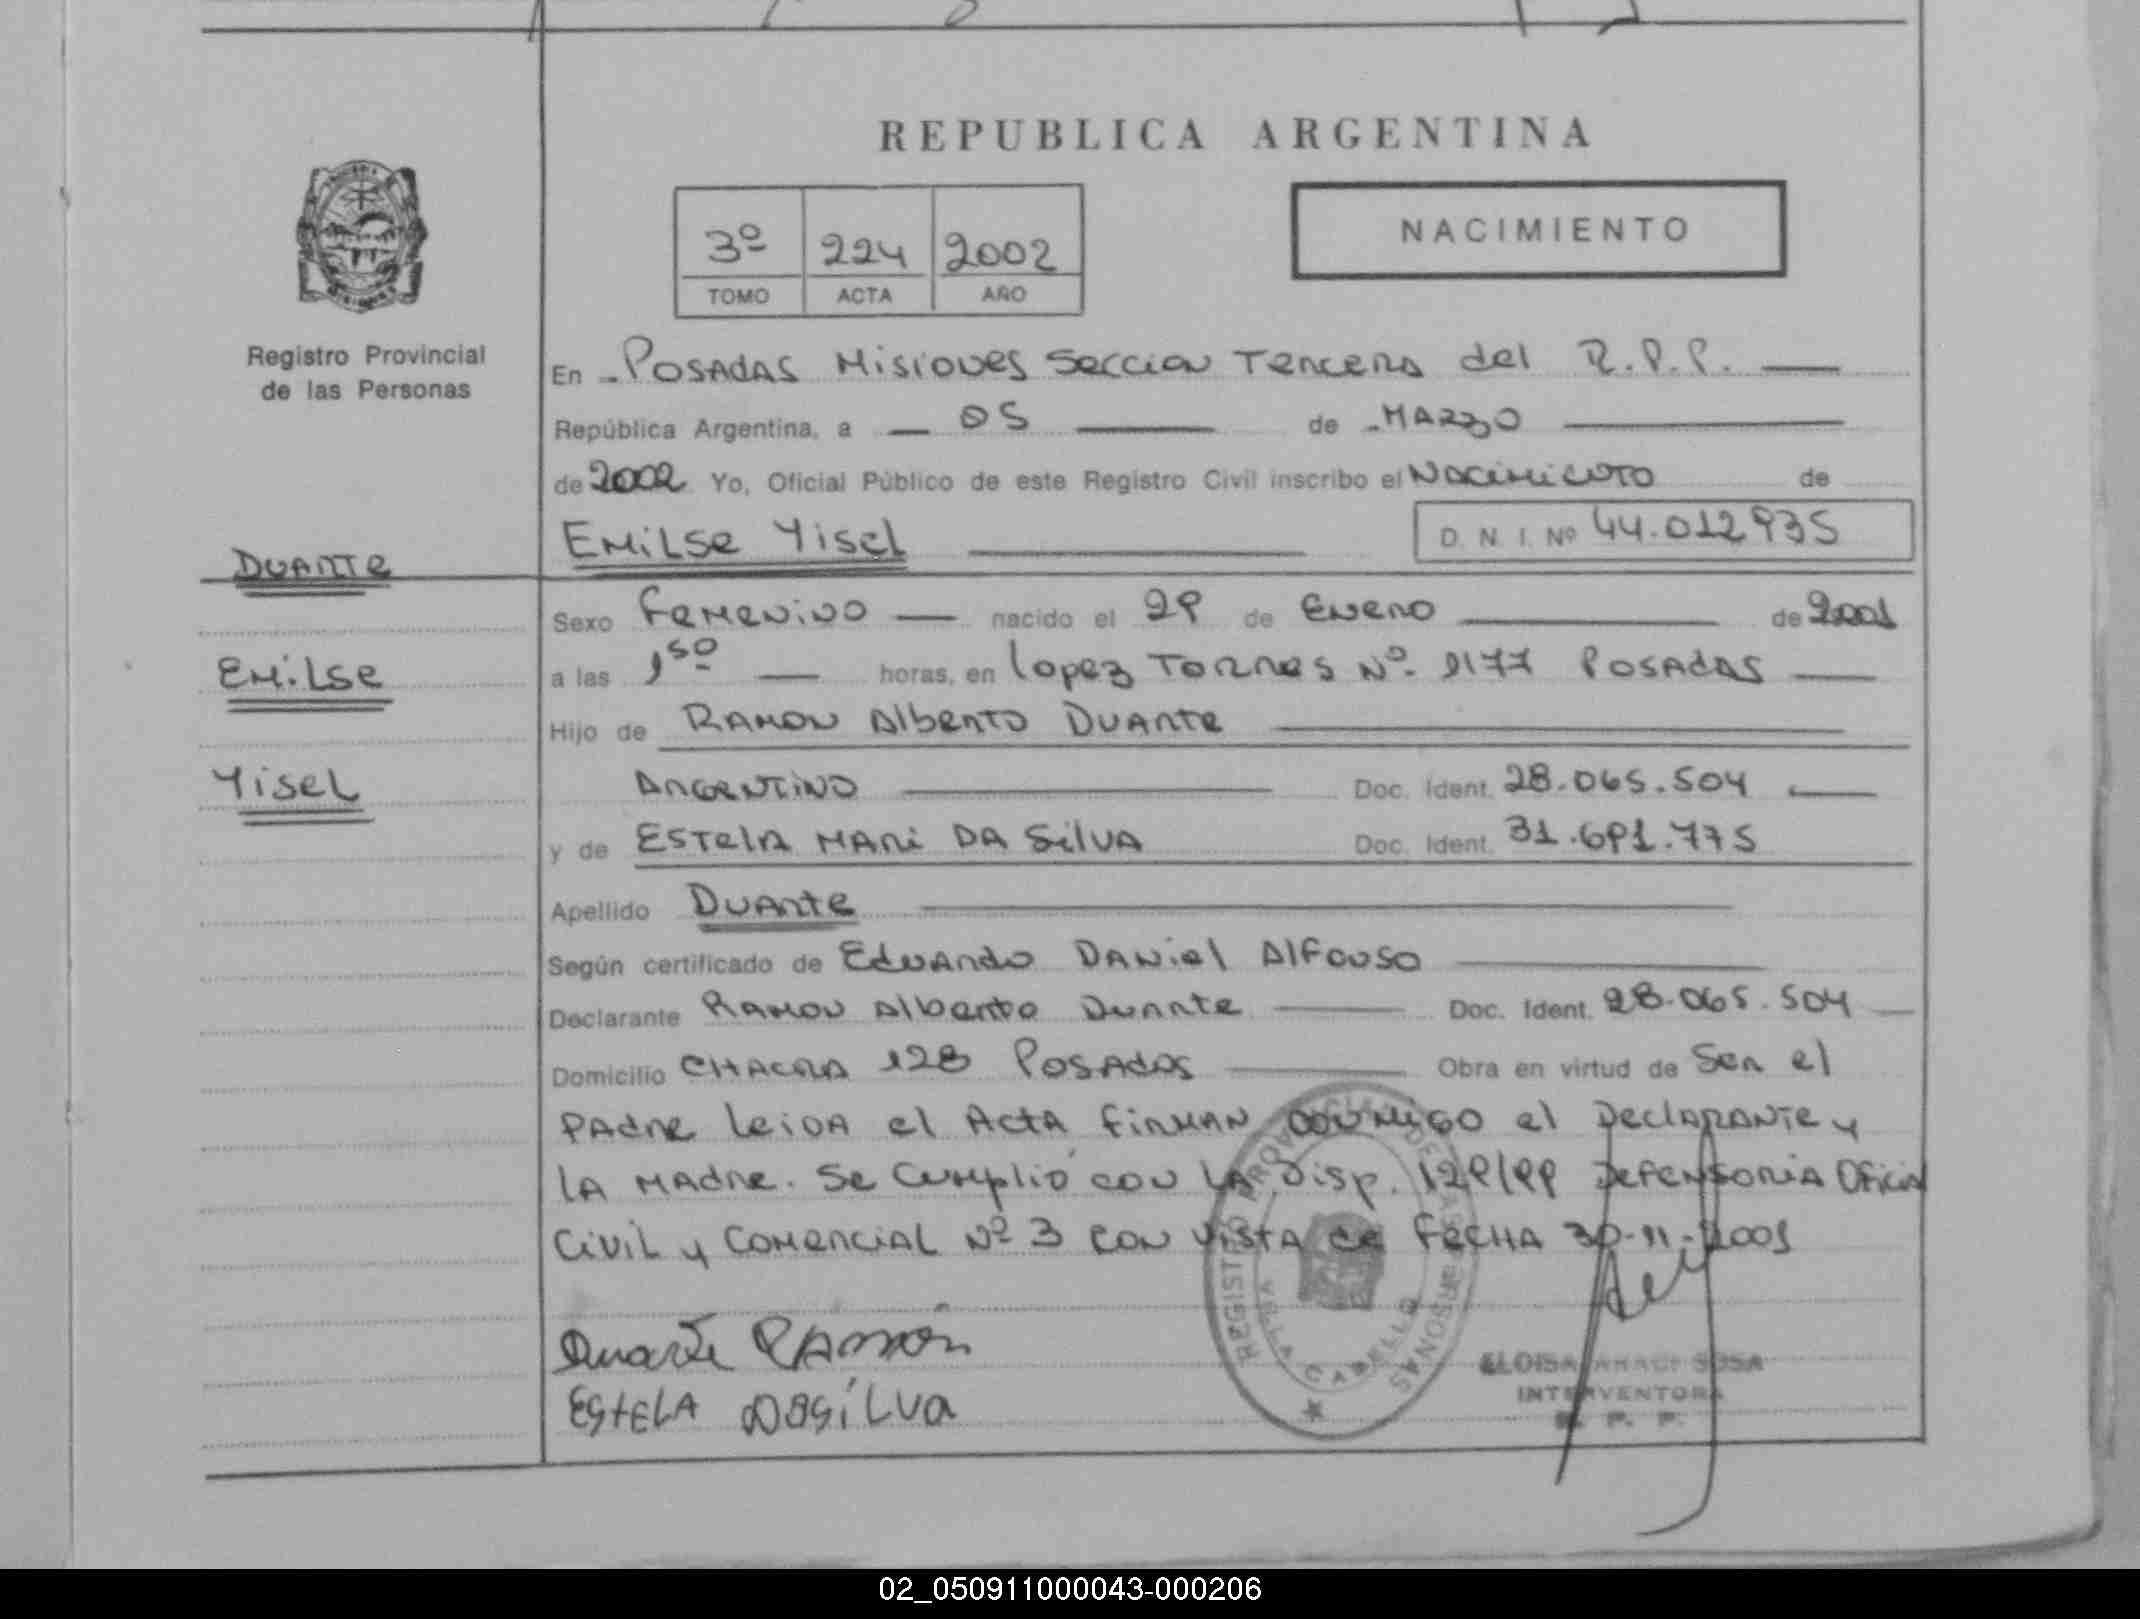 REPUBLICA ARGENTINA
3º 224 2002
TOMO ACTA AÑO
NACIMIENTO
Registro Provincial
de las Personas
En - Posadas Misiones Seccion Tercera del R.P.P.
República Argentina, a 05 de - Marzo
de 2002 Yo, Oficial Público de este Registro Civil inscribo el Nacimiento de
Emilse Yisel D. N. I. Nº 44.012935
Duarte
Sexo Femenino nacido el 29 de Enero de 2001
Emilse
a las 1⁵⁰ horas, en Lopez Torres Nº. 1177 Posadas
Hijo de Ramon Alberto Duarte
Yisel
Argentino Doc. Ident. 28.065.504
y de Estela Mari Da Silva Doc. Ident. 31.691.775
Apellido Duarte
Según certificado de Eduardo Daniel Alfonso
Declarante Ramon Alberto Duarte Doc. Ident. 28.065.504
Domicilio Chacra 128 Posadas Obra en virtud de Ser el
Padre Leida el Acta firman conmigo el Declarante y
la Madre. Se Cumplió con la Disp. 129/99 Defensoria Oficial
Civil y Comercial Nº 3 con vista de fecha 30-11-2001
Duarte Ramón
Estela Dasílva
REGISTRO PROVINCIAL DE LAS PERSONAS
VILLA CABELLO
ELOISA ARACI SOSA
INTERVENTORA
R. P. P.
02_050911000043-000206